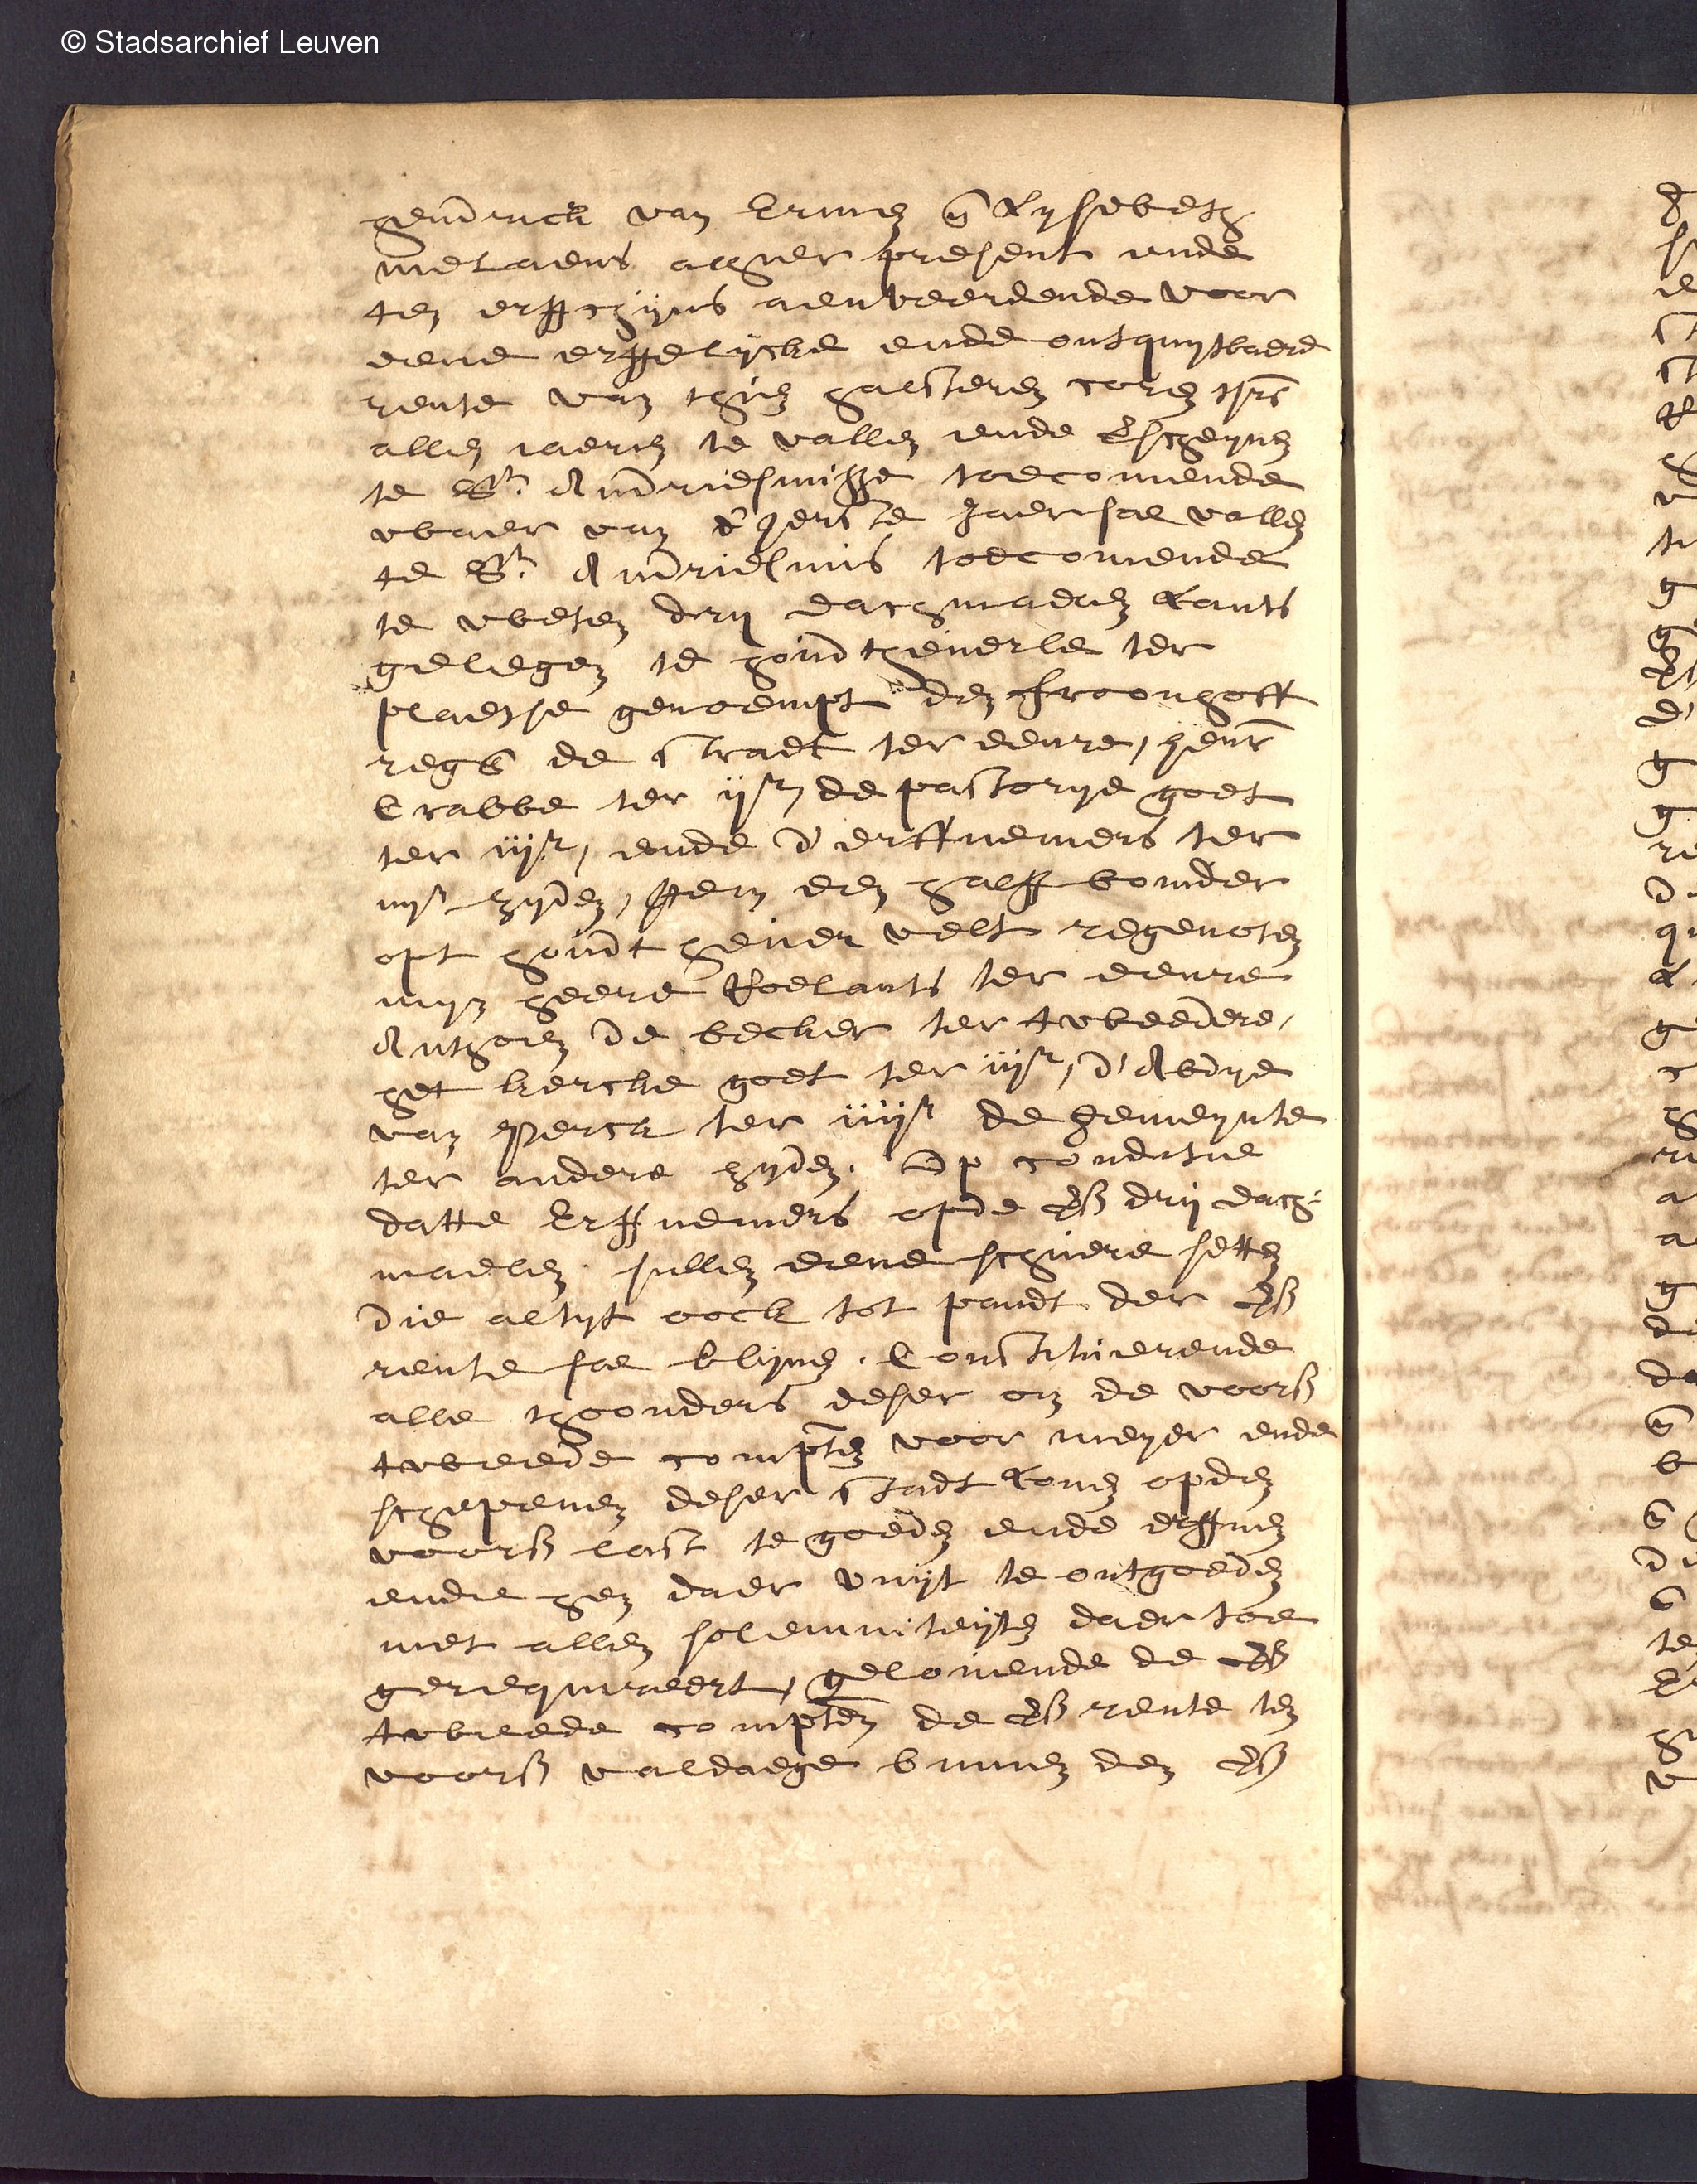 © Stadsarchief Leuven
hendrick van Ermen en Lysebeth
metaens alhier present ende
ten erffchijns aenveerdende voor
eene erffelijcke ende onquytbaere
rente van thien halsteren coren tsrs
allen jaeren te vallen ende verschynen
te St. Andriesmisse toecomende
waer van d'ierste jaer sal vallen
te St. Andriesmis toecomende
te weten dry dachmaelen Lants
gelegen te hondtsheverle ter
plaetse genoempt den froonhoff
regen de straet ter eenre, henr
Crabbe ter ijr, de pastorije goet
ter iijr, ende d'erffnemers ter
iiijr zyden, Item een halff bonder
opt hondt hever velt regenoten
mijn heere Roelants ter eenre
Anthoen de becker ter tweedere,
het kercke goet ter iijr, d'Abdye
van Perck ter iiijr de gemeynte
ter andere zyden. Op conditie
datte Erffnemers opde vs drij dach-
maelen sullen eene schuere setten
die altyt oock tot pandt der vs
rente sal blijven. Constituerende
alle thoonders deser om de voors
tweede compten voor meyer ende
schepenen deser stadt Loven opden
voors last te goeden ende erffven
ende hen daer vuijt te ontgoeden
met allen solemniteijten daer toe
gerequireert, gelovende de vs
tweede compten de vs rente ten
voors valdaege binnen den vs